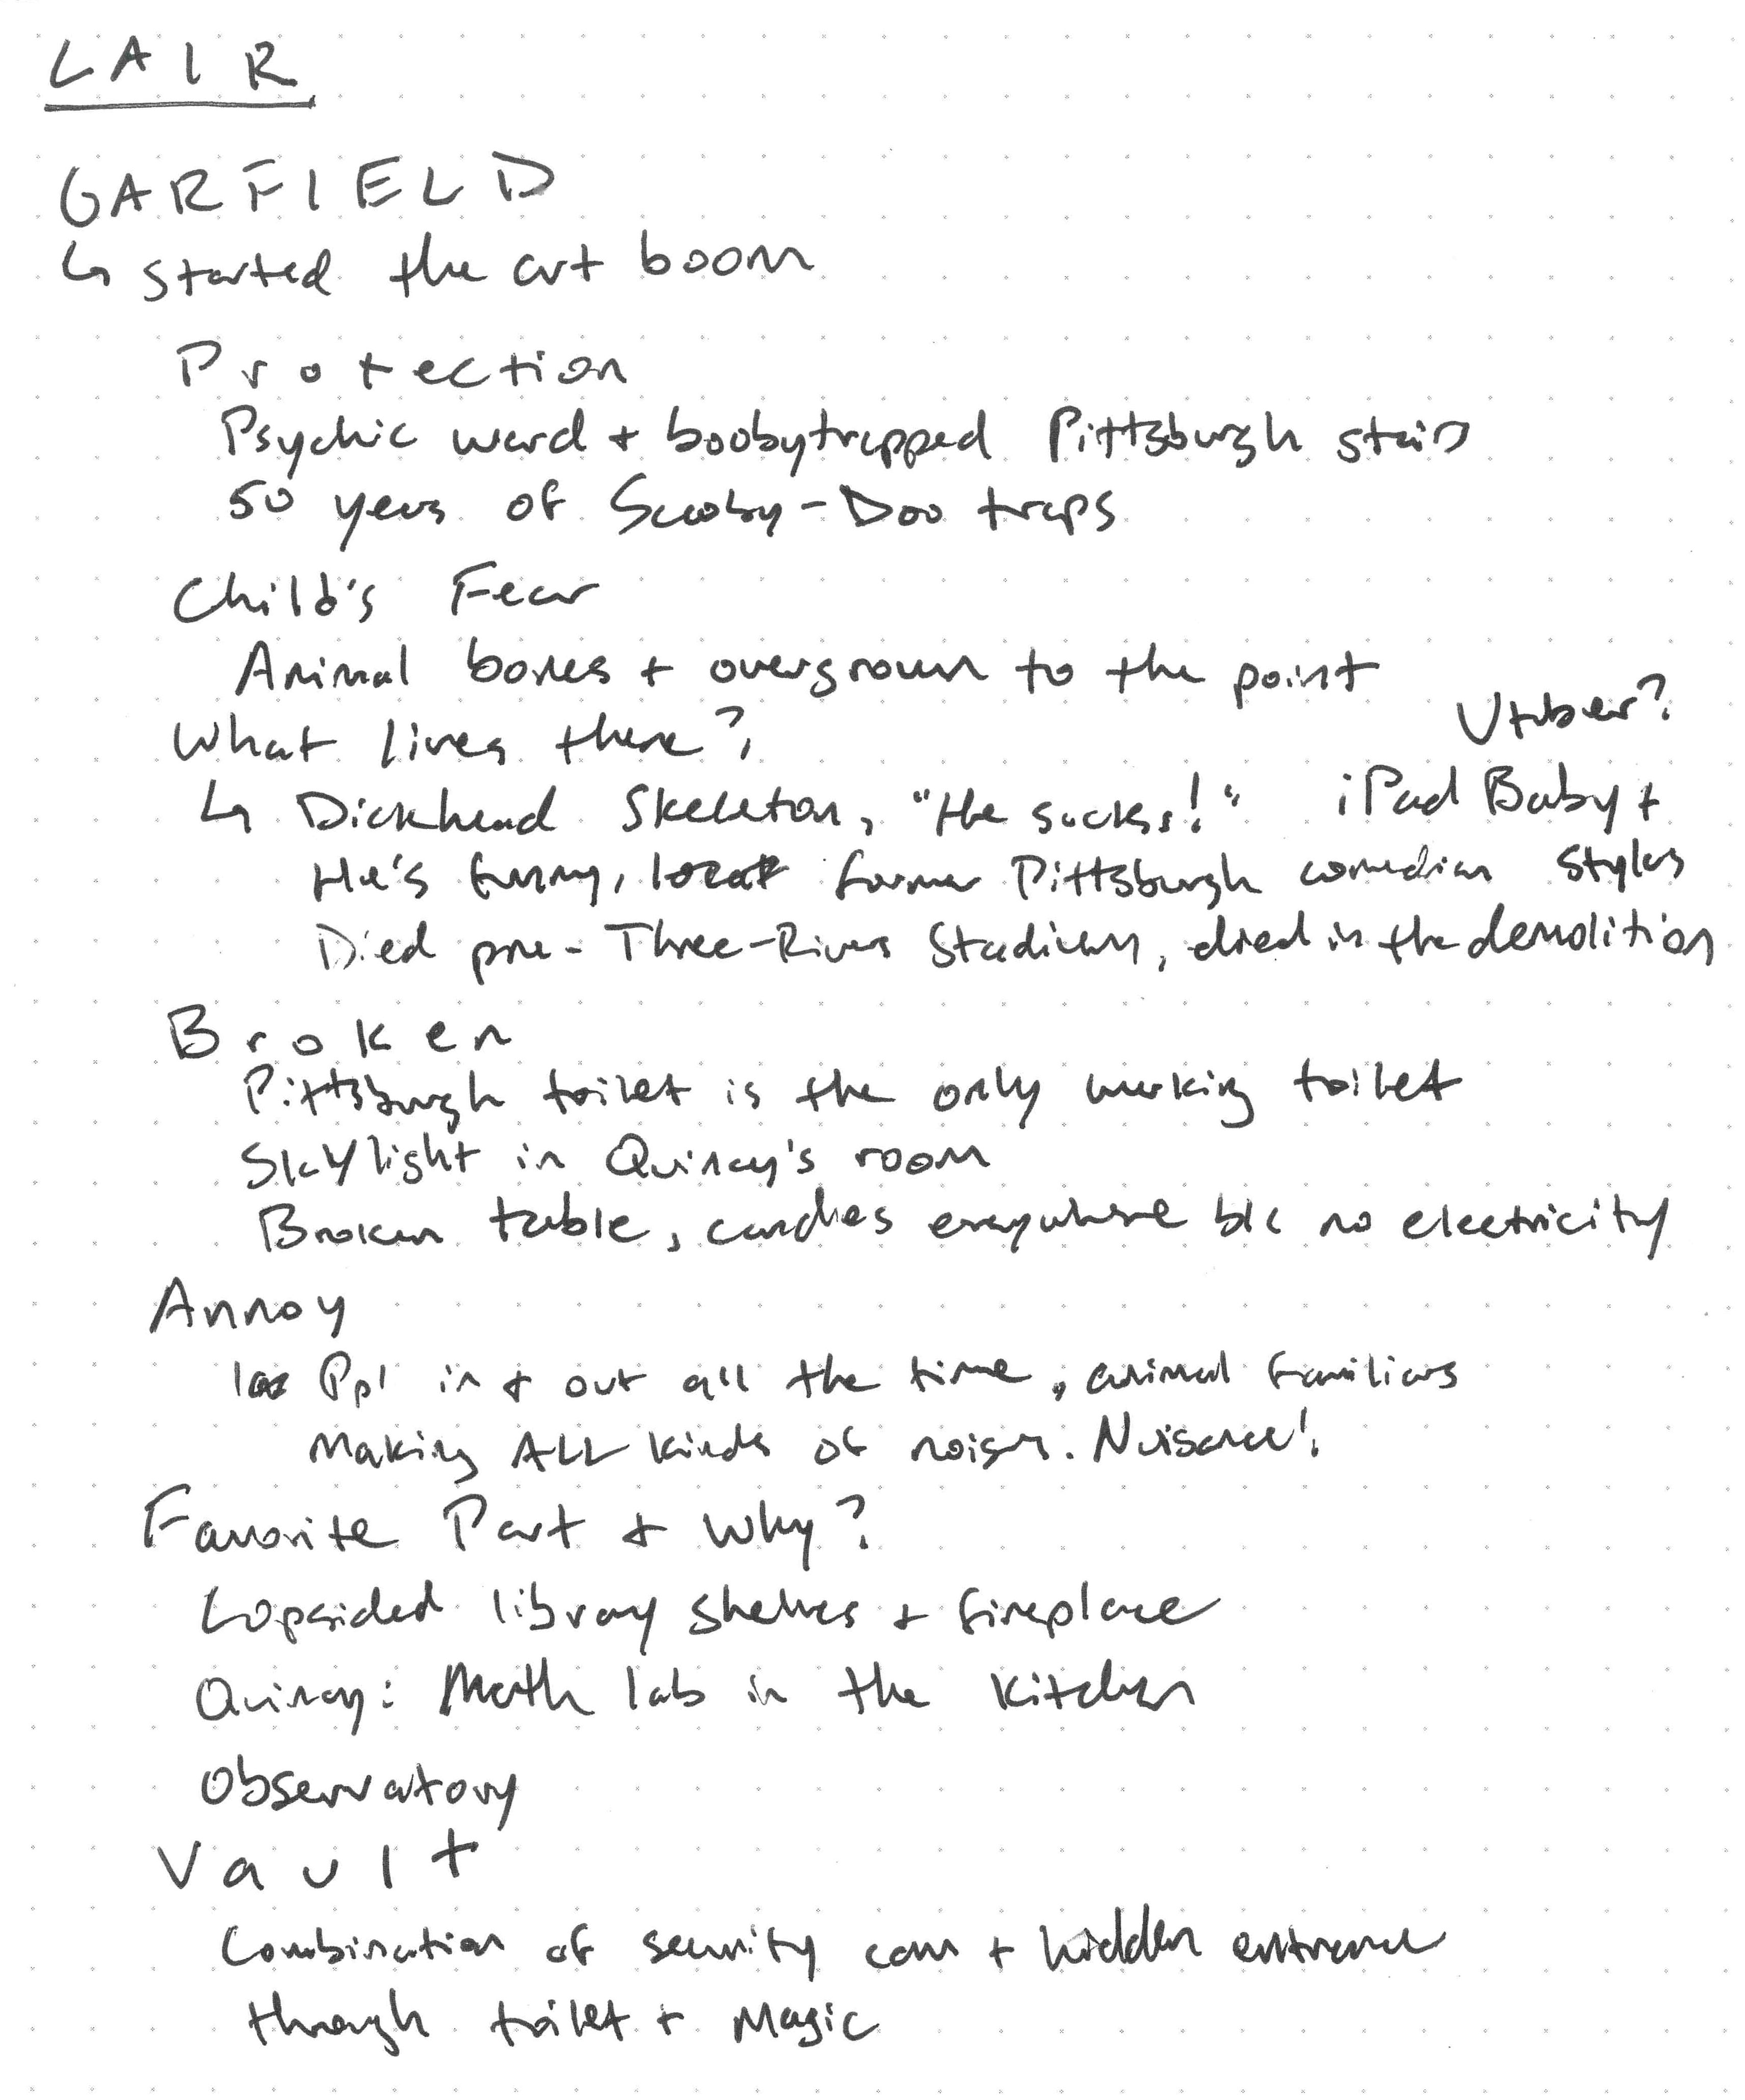 LAIR
GARFIELD
↳ started the art boom
Protection
Psychic ward + boobytrapped Pittsburgh stairs
50 years of Scooby-Doo traps
Child's Fear
Animal bones + overgrown to the point
What lives there?
Vtuber?
↳ Dickhead Skeleton, "He sucks!" iPad Baby +
He's funny, former Pittsburgh comedian styles
Died pre-Three-Rivers Stadium, died in the demolition
Broken
Pittsburgh toilet is the only working toilet
Skylight in Quincy's room
Broken table, candles everywhere b/c no electricity
Annoy
Ppl in + out all the time, animal familiars
Making ALL kinds of noises. Nuisance!
Favorite Part + Why?
Lopsided library shelves + fireplace
Quincy: Meth lab in the kitchen
Observatory
Vault
Combination of security cam + hidden entrance
through toilet + Magic